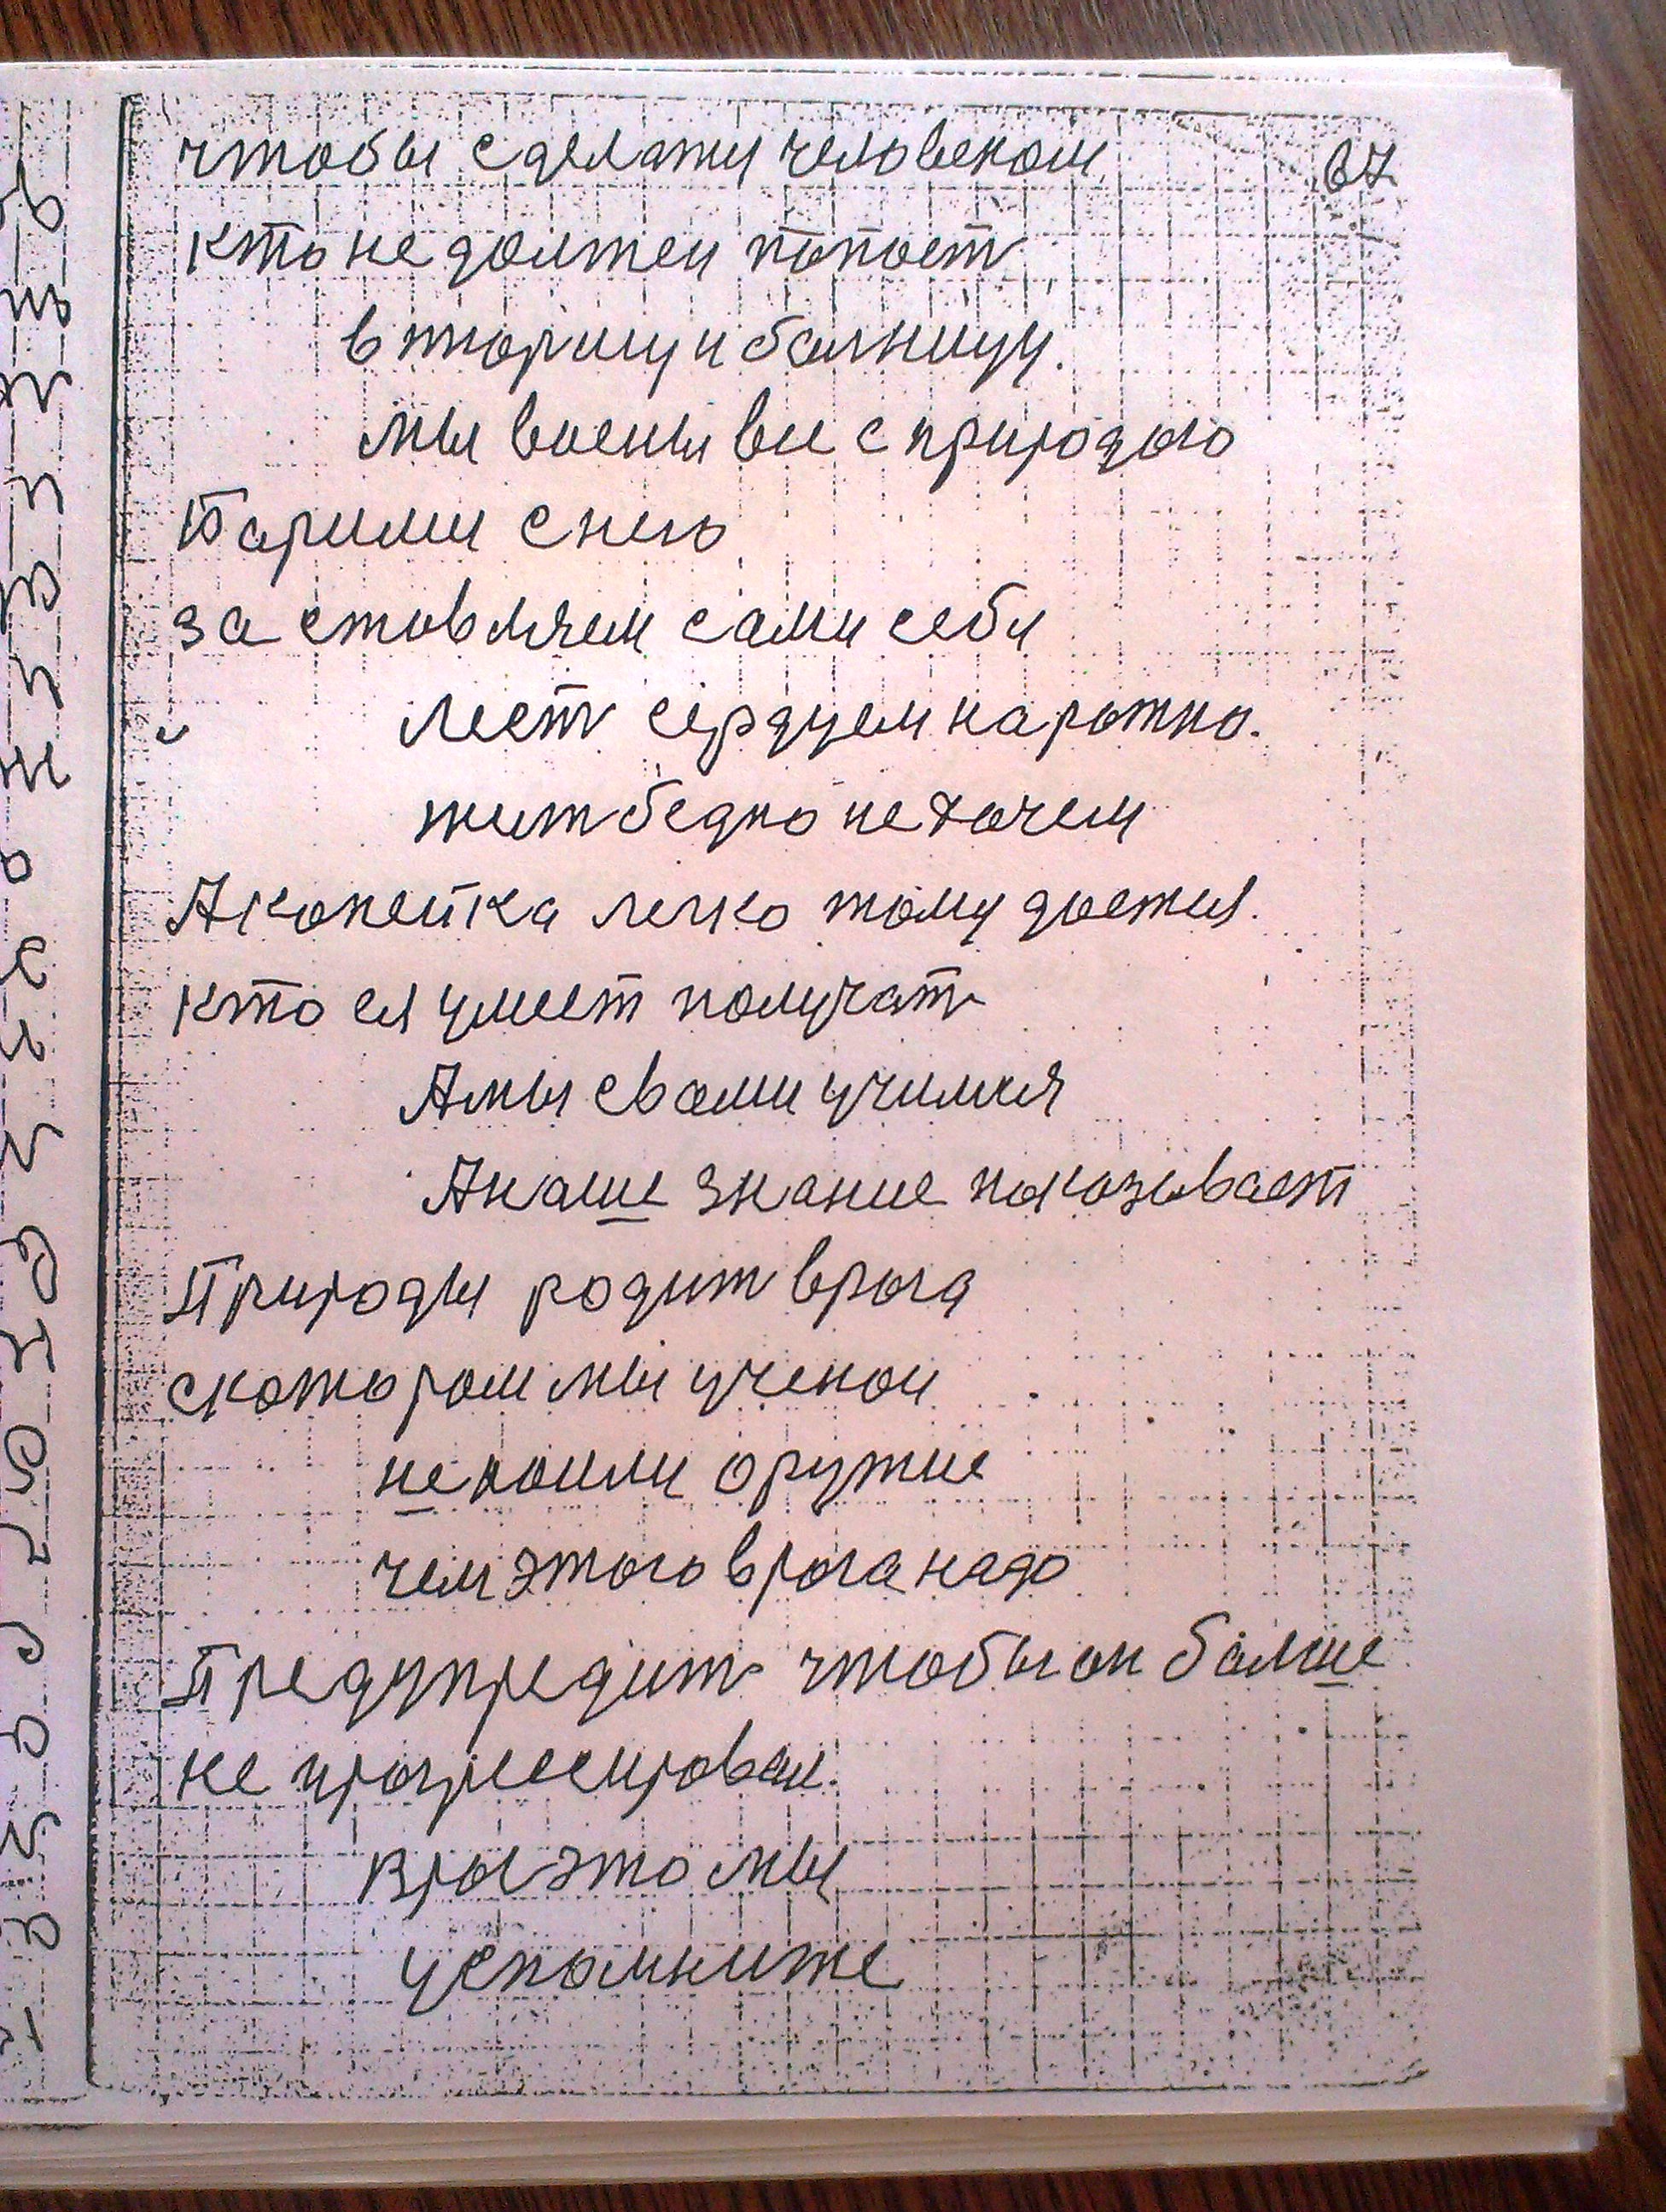 чтобы сделати человеком 67
кто не должен попаст
в тюрму и балницу.
мы воены вси с природою
Борими с нею
за ставляем сами себя
Лест сердцем на рожно.
жит бедно не хочем
А копейка легко тому достися.
кто ея умеет получат
А мы свами учимся
А наше знание показывает
Природы родит врага
скоторам мы ученои
не нашли оружие
чем этого врага надо
Предупредит чтобы он болше
не прогресировал.
враг это мы
успомните